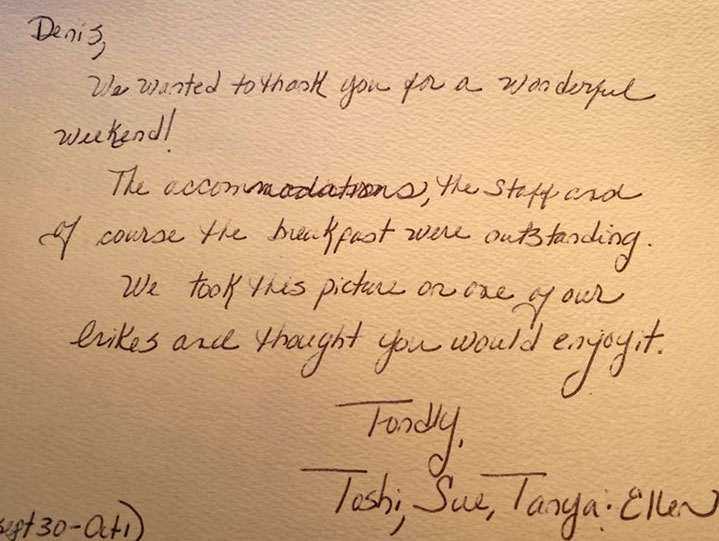 Denis,
We wanted to thank you for a wonderful
weekend!
The accommodations, the staff and
of course the breakfast were outstanding.
We took this picture on one of our
hikes and thought you would enjoy it.
Fondly,
Toshi, Sue, Tanya · Ellen
sept 30 - Oct 1)